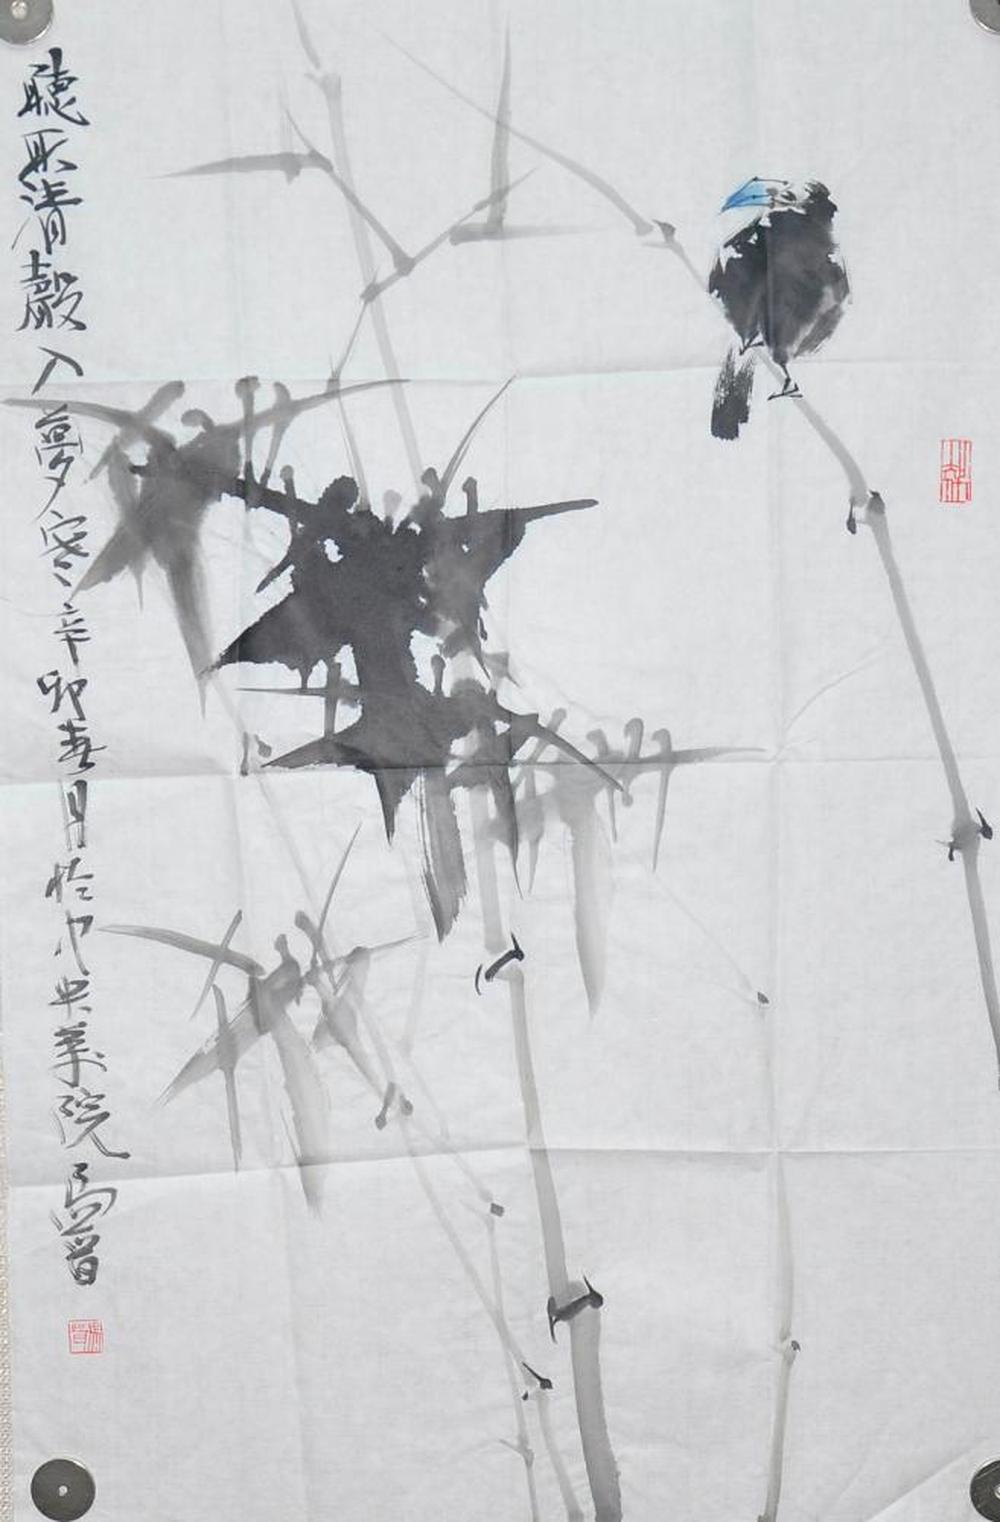 聽取清聲入夢寒辛卯春月於中央美院